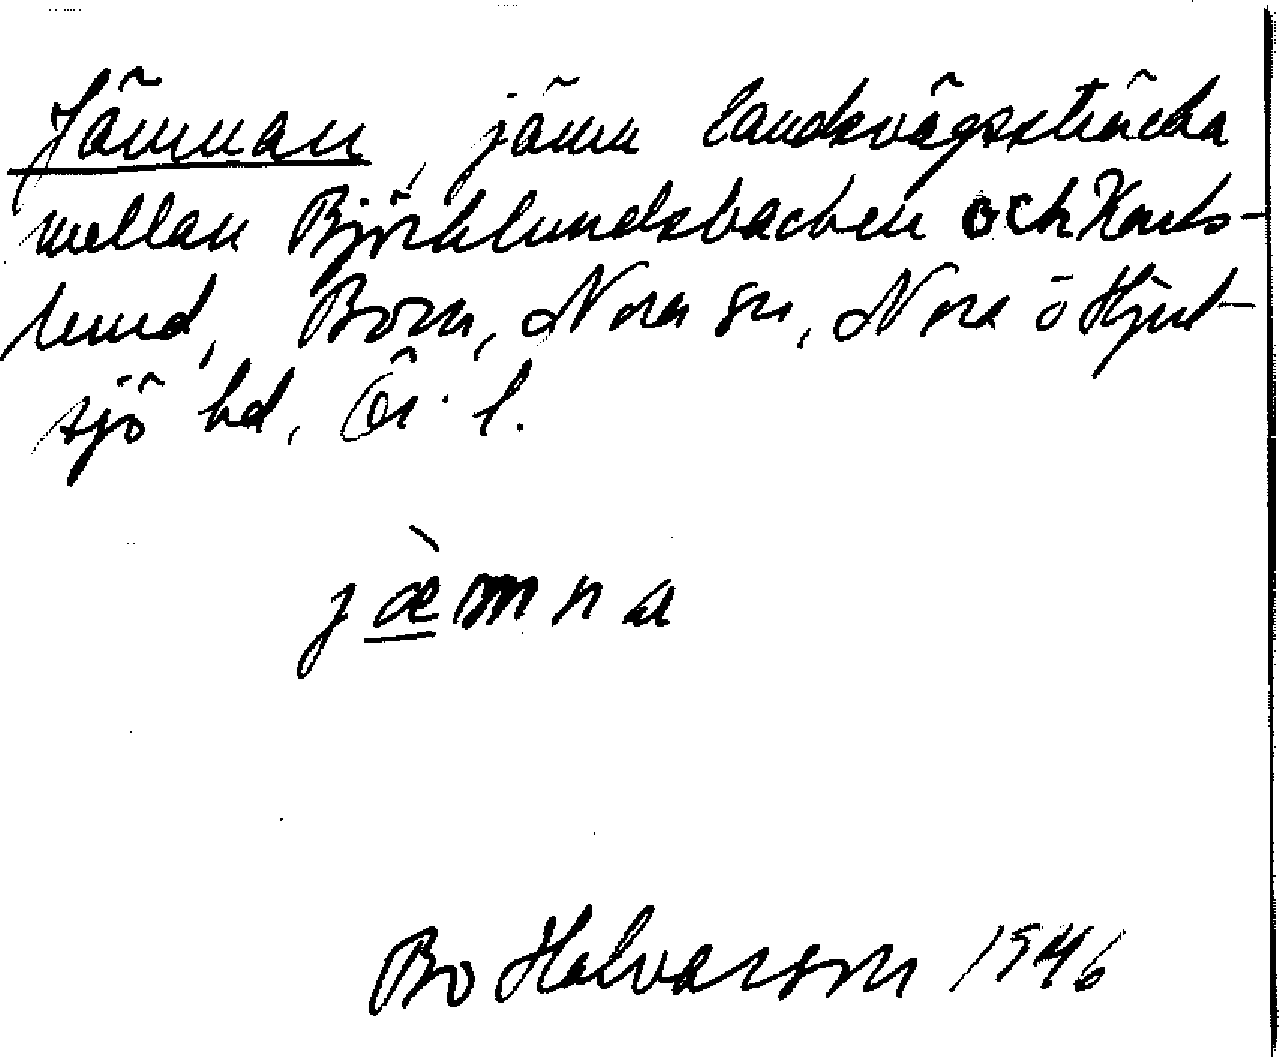 Jämnan, jämn landsvägssträcka
mellan Björklundsbacken och Karls-
lund, Born, Nora sn, Nora o Hjul-
sjö hd, Ör. l.
jæ̀mna
Bo Halvarson 1946